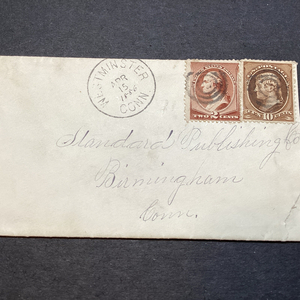 WESTMINSTER
APR
15
CONN
TWO 2 CENTS
10
Standard Publishing Co
Birmingham
Conn.